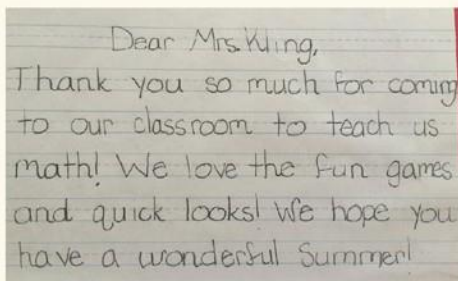 Dear Mrs. Kling,
Thank you so much for coming
to our classroom to teach us
math! We love the fun games
and quick looks! We hope you
have a wonderful Summer!